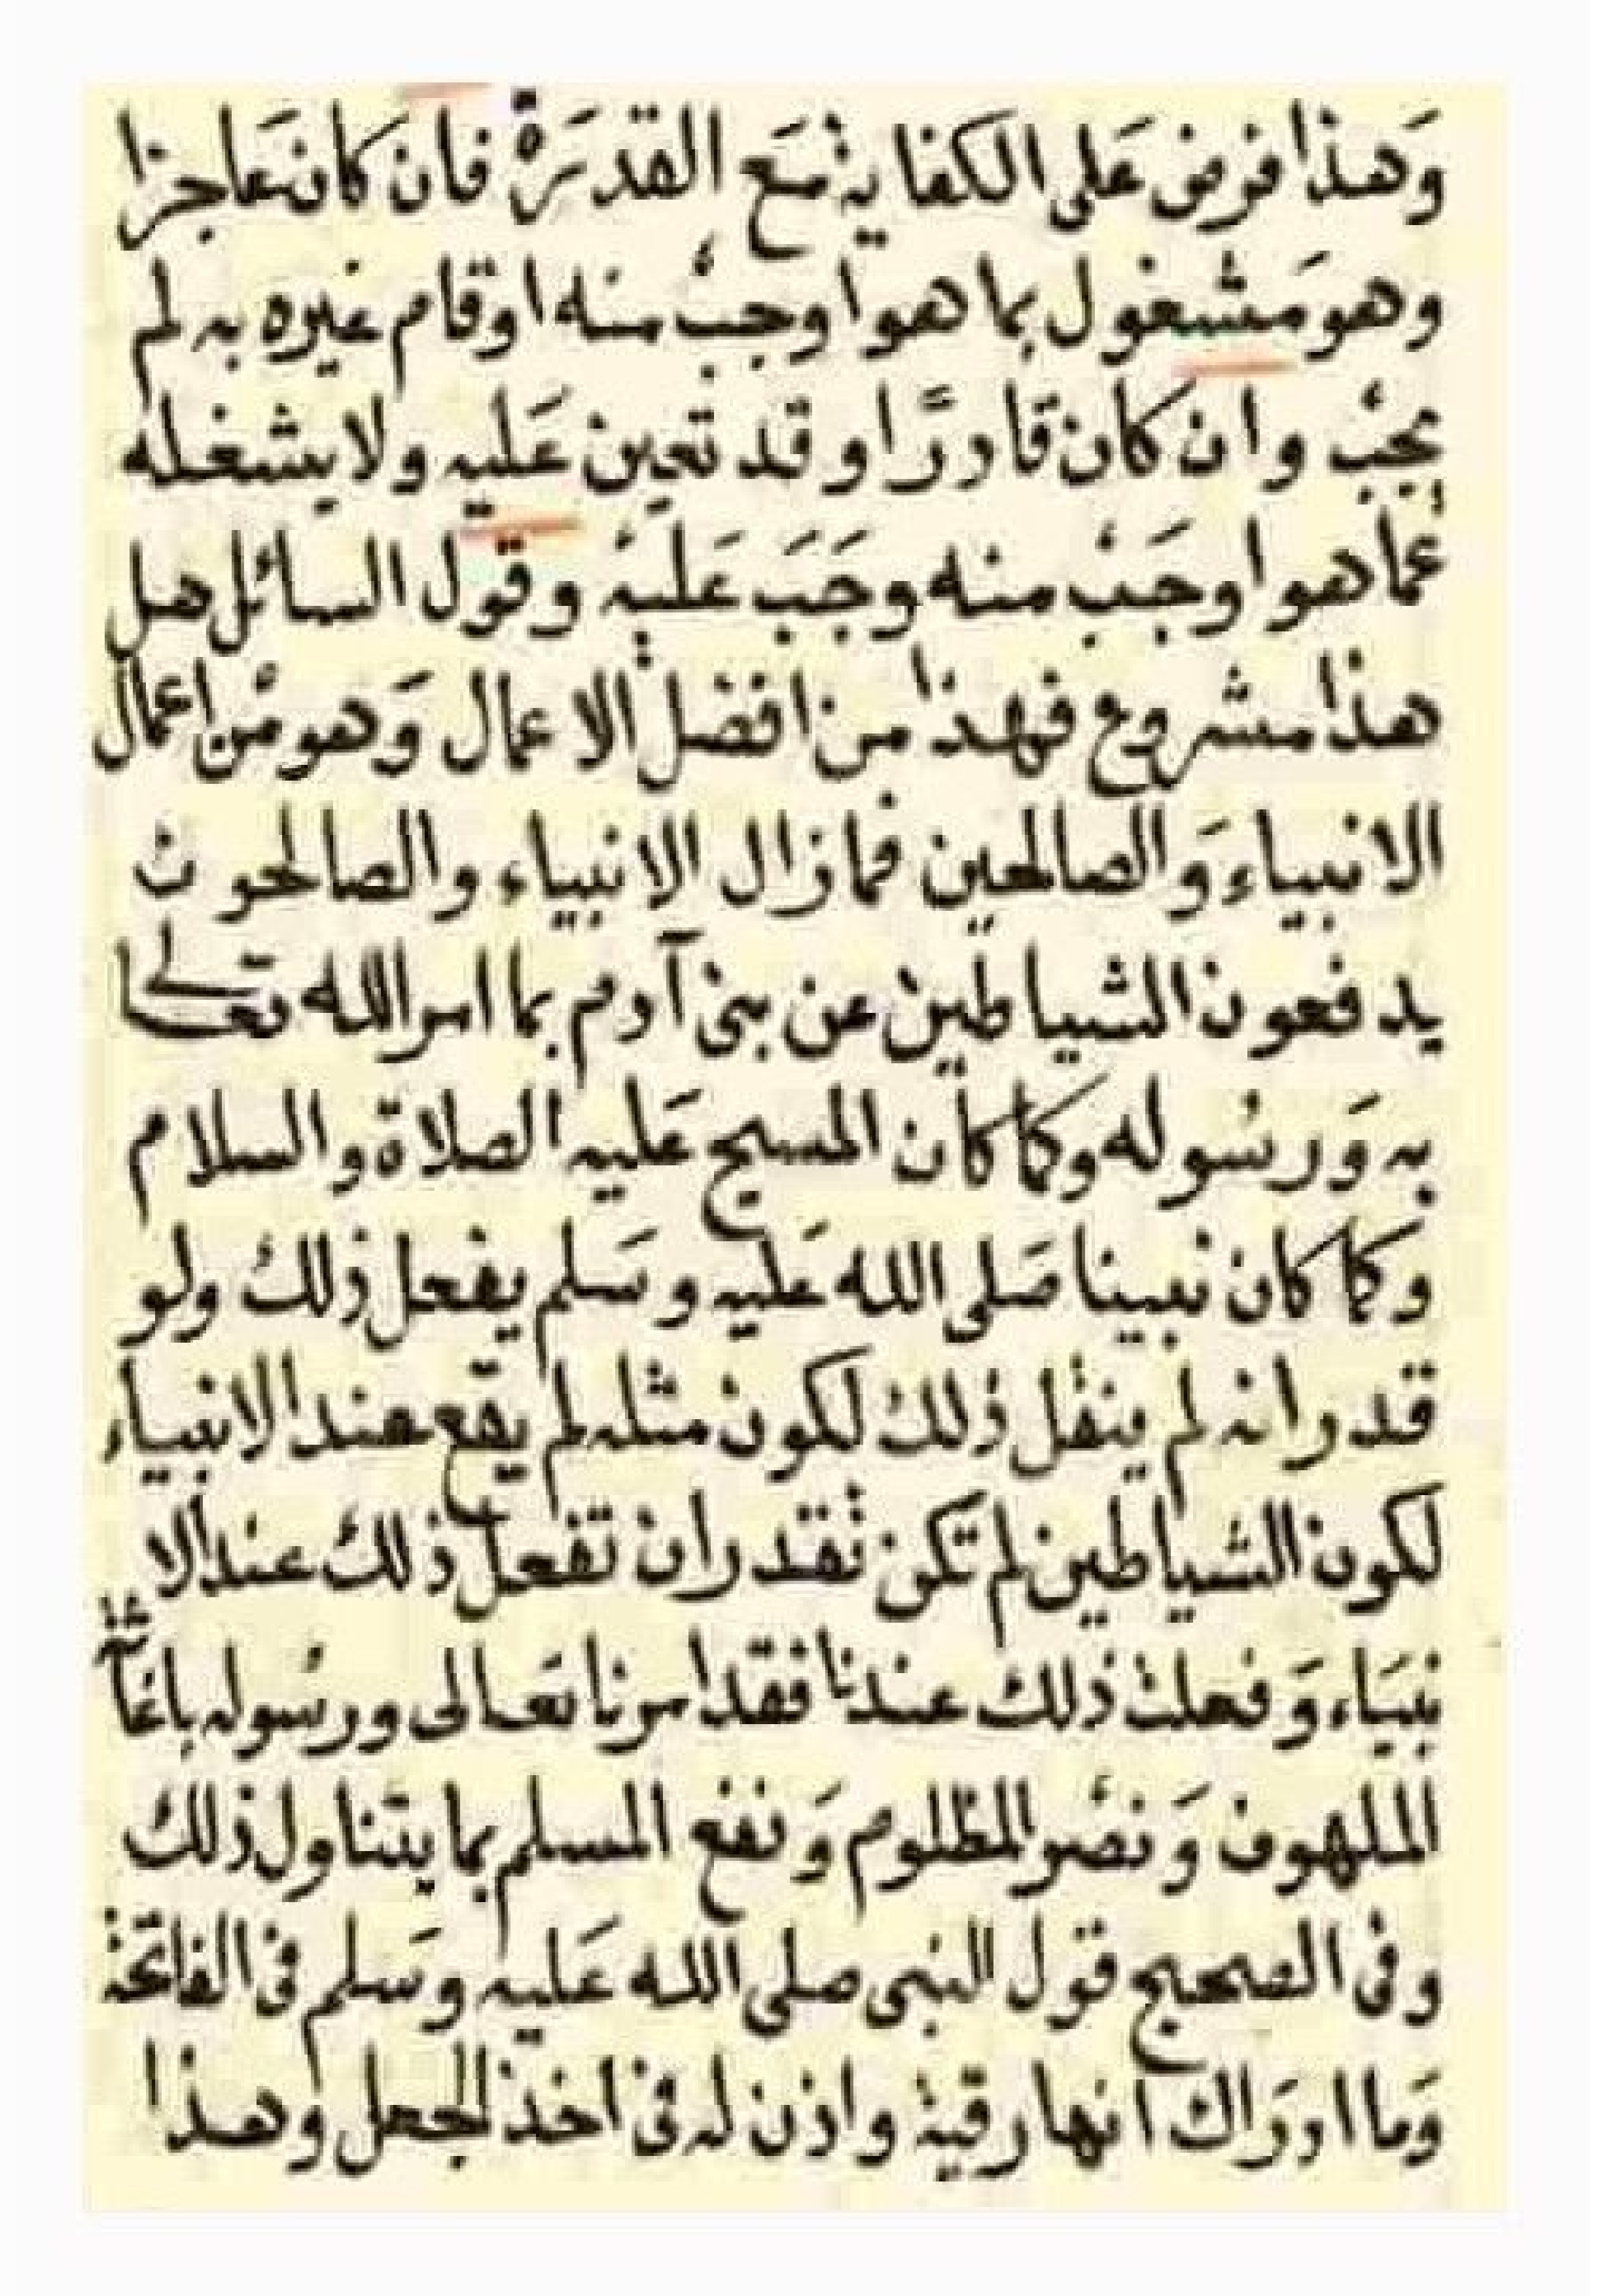 وَهذا فرض عَلى الكفاية مَع القدرَة فان كان عَاجزا
وهو مَشغول بما هو اوجب منه او قام غيره به لم
يجب وان كان قادرًا وقد تعين عَليه ولا يشغله
عما هو اوجَب منه وجَبَ عَليه وقول السائل هل
هذا مشروع فهذا من افضل الاعمال وَهو من اعمال
الانبياء وَالصالحين فما زال الانبياء والصالحون
يدفعون الشياطين عن بنى آدم بما امر الله تعالى
به وَرسُوله وكما كان المسيح عَليه الصلاة والسلام
وكما كان نبينا صَلى الله عَليه وسَلم يفعل ذلك ولو
قدر انه لم ينقل ذلك لكون مثله لم يقع عند الانبياء
لكون الشياطين لم تكن تقدر ان تفعل ذلك عند الا
نبيَاء وَفعلت ذلك عندنا فقد امرنا تعَالى ورسُوله باغاثة
الملهوف وَنصر المظلوم وَنفع المسلم بما يتناول ذلك
وفى الصحيح قول النبى صلى الله عَليه وسَلم فى الفاتحة
وَما ادرَاك انها رقية واذن له فى اخذ الجعل وهذا